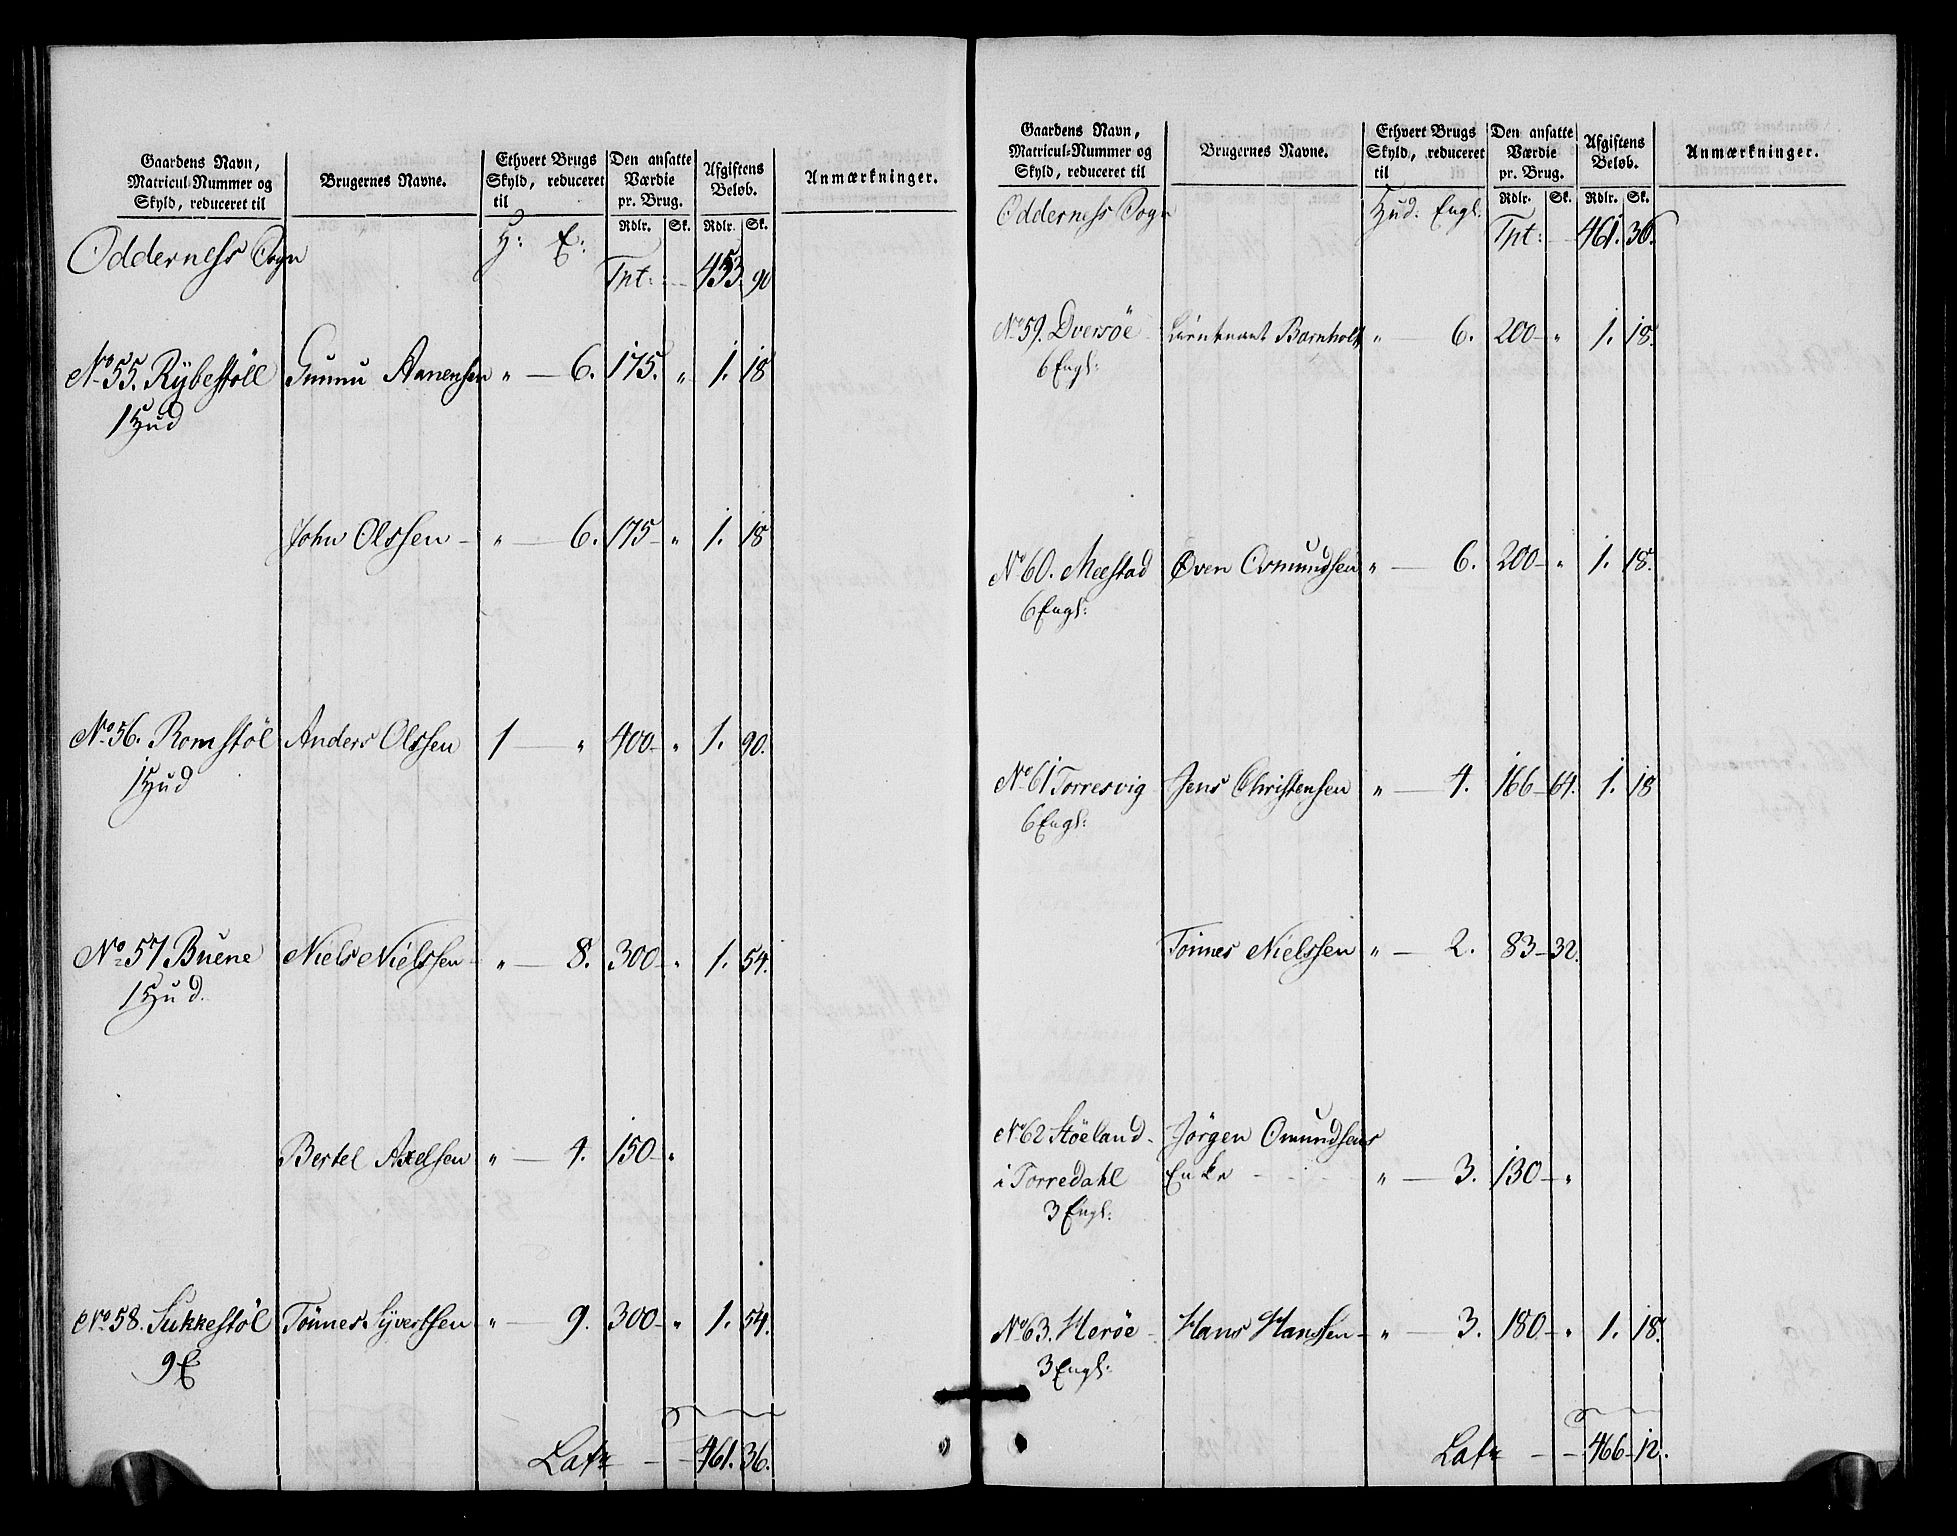 Gaardens Navn,
Matricul-Nummer og
Skyld, reduceret til
Brugernes Navne.
Ethvert Brugs
Skyld, reduceret
til
Den ansatte
Værdie
pr. Brug.
Rdlr. Sk.
Afgiftens
Beløb.
Rdlr. Sk.
Anmærkninger.
Odderness Sogn H: E: Tpt: 453 90
No 55. Rÿbestöll Gunnu Aanensen " — 6. 175. " 1. 18
1 Hud
John Olssen — " — 6. 175 — " 1. 18
No 56. Romstøl Anders Olssen 1 — " 400 — " 1. 90.
1 Hud
No 57 Buene Niels Nielssen — " — 8. 300 — " 1. 54.
1 Hud.
Bertel Axelsen " — 4. 150 — "
No 58. Sukkestøl Tönnes Syvertsen " — 9. 300 — " 1. 54.
9 E
Lat — — 461. 36.
Gaardens Navn,
Matricul-Nummer og
Skyld, reduceret til
Brugernes Navne.
Ethvert Brugs
Skyld, reduceret
til
Den ansatte
Værdie
pr. Brug.
Rdlr. Sk.
Afgiftens
Beløb.
Rdlr. Sk.
Anmærkninger.
Odderness Sogn Hud. Engl. Tpt: 461. 36.
No 59. Dversöe Lieutenant Barnholt " — 6. 200 — " 1. 18.
6 Engl:
No 60. Meestad Oven Osmundsen " — 6. 200 — " 1. 18.
6 Engl:
No 61 Torresvig Jens Christensen " — 4. 166 — 64. 1. 18
6 Engl:
Tönnes Nielssen " — 2. 83 — 32.
No 62 Støeland — Jörgen Omundsens
i Torredahl Enke — " — 3. 130 — "
3 Engl:
No 63. Heröe — Hans Hanssen — " — 3. 180 — " 1. 18.
3 Engl:
Lat — — 466 — 12.